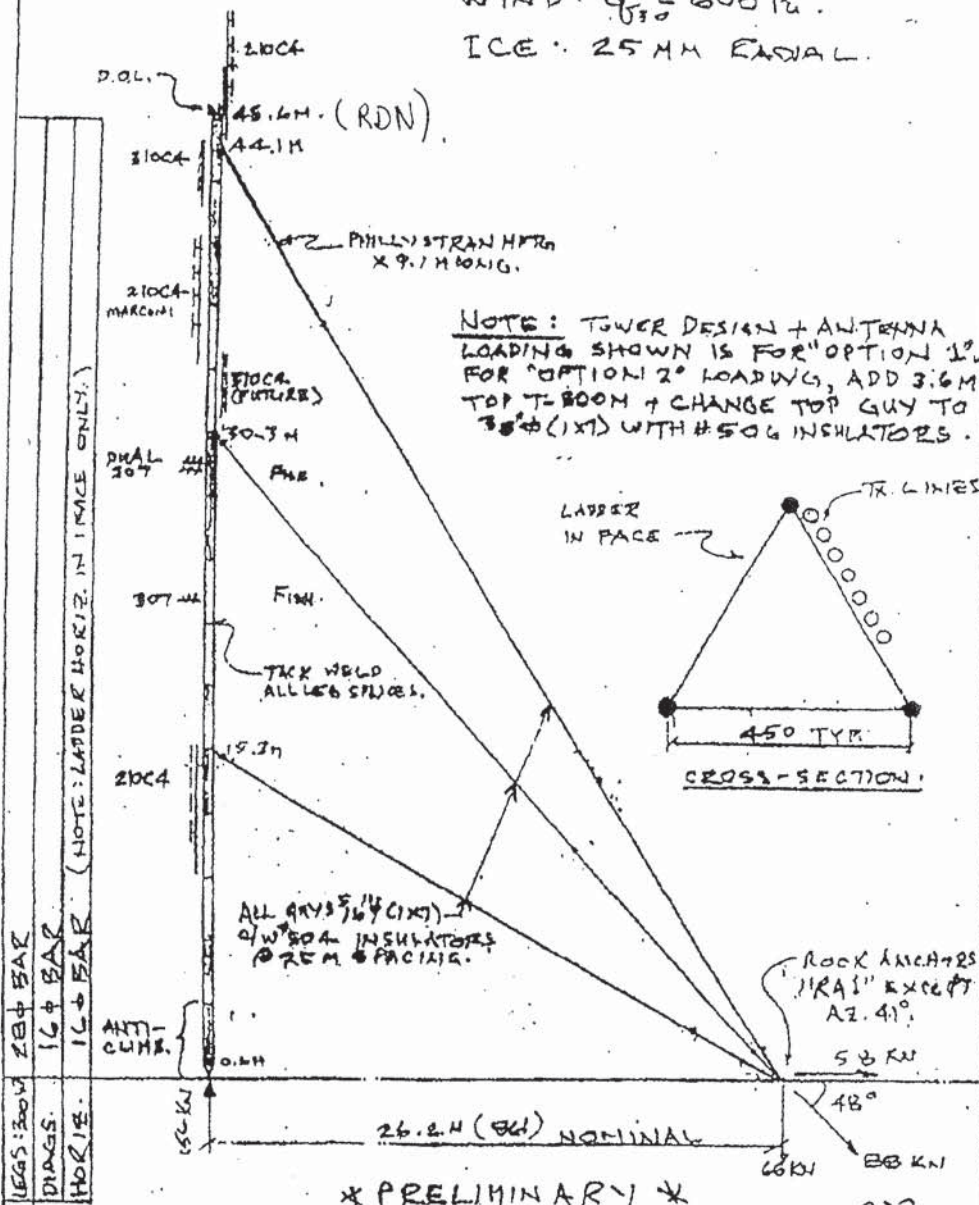 ICE : 25 MM RADIAL.
210C4
D.O.L.
45.6M. (RDN)
44.1M
310C4
PHILLYSTRAN HPTG
X 9.1 M LONG.
210C4
MARCONI
NOTE: TOWER DESIGN + ANTENNA
LOADING SHOWN IS FOR "OPTION 1".
FOR "OPTION 2" LOADING, ADD 3.6M
TOP T-BOOM + CHANGE TOP GUY TO
(1X7) WITH #506 INSULATORS.
310C4
(FUTURE)
30.3 M
DUAL
307
LADDER
IN FACE
TX. LINES
307
TACK WELD
ALL LEG SPLICES.
450 TYP.
CROSS-SECTION.
15.3M
210C4
ALL GUYS 5/16"φ (1X7)
C/W #504 INSULATORS
@ 25M SPACING.
ROCK ANCHORS
"RA1" EXCEPT
AZ. 41°.
ANTI-
CLIMB.
0.6M
58 KN
48°
88 KN
66 KN
26.2 M (86') NOMINAL
* PRELIMINARY *
LEGS: 300W 28φ BAR
DIAGS. 16φ BAR
HORIZ. 16φ BAR (NOTE: LADDER HORIZ. IN 1 FACE ONLY.)